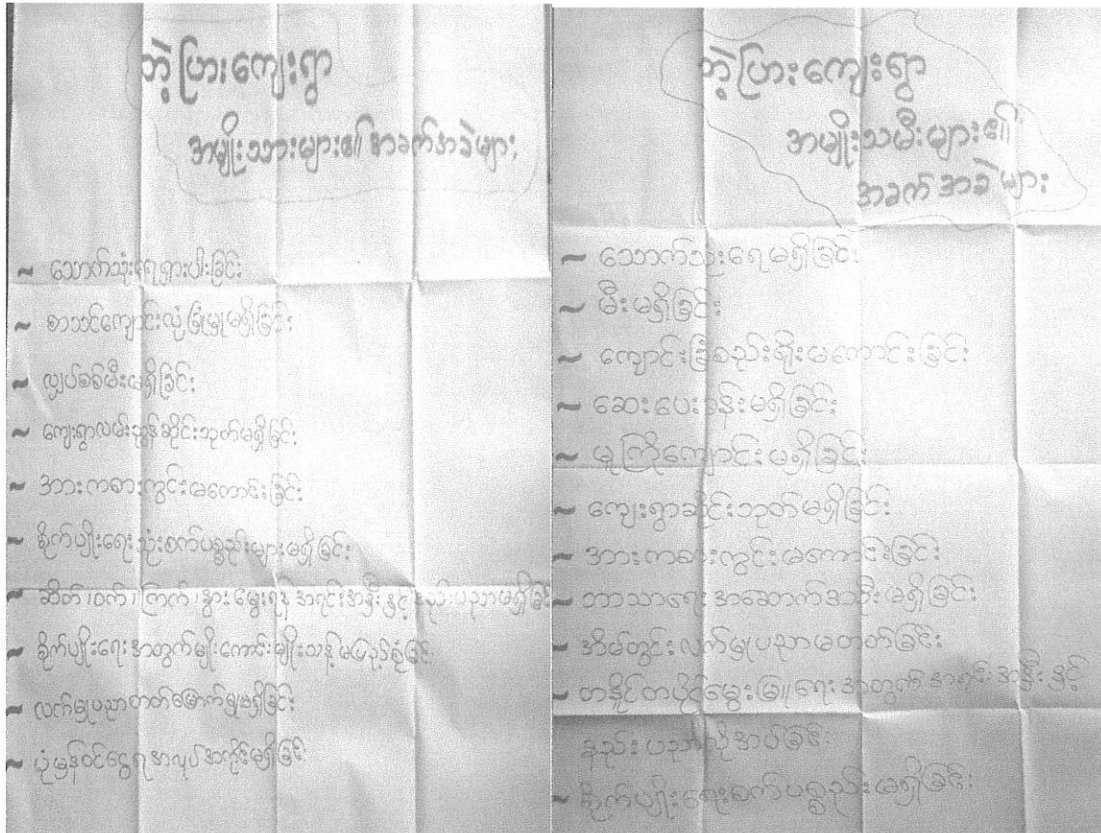 ဘဲပြားကျေးရွာ
အမျိုးသားများ၏ အခက်အခဲများ
~ သောက်သုံးရေရှားပါးခြင်း
~ စာသင်ကျောင်းလုံခြုံမှုမရှိခြင်း
~ လျှပ်စစ်မီးမရှိခြင်း
~ ကျေးရွာလမ်းညွှန်ဆိုင်းဘုတ်မရှိခြင်း
~ အားကစားကွင်းမကောင်းခြင်း
~ စိုက်ပျိုးရေးသုံးစက်ပစ္စည်းများမရှိခြင်း
~ ဆိတ်၊ ဝက်၊ ကြက်၊ နွား မွေးရန် အရင်းအနှီးနှင့် နည်းပညာမရှိခြင်း
~ စိုက်ပျိုးရေးအတွက်မျိုးကောင်းမျိုးသန့်မပြည့်စုံခြင်း
~ လက်မှုပညာတတ်မြောက်မှုမရှိခြင်း
~ ပုံမှန်ဝင်ငွေရအလုပ်အကိုင်မရှိခြင်း
ဘဲပြားကျေးရွာ
အမျိုးသမီးများ၏
အခက်အခဲများ
~ သောက်သုံးရေမရှိခြင်း
~ မီးမရှိခြင်း
~ ကျောင်းခြံစည်းရိုးမကောင်းခြင်း
~ ဆေးပေးခန်းမရှိခြင်း
~ မူကြိုကျောင်းမရှိခြင်း
~ ကျေးရွာဆိုင်းဘုတ်မရှိခြင်း
~ အားကစားကွင်းမကောင်းခြင်း
~ ဘာသာရေးအဆောက်အအုံမရှိခြင်း
~ အိမ်တွင်းလက်မှုပညာမတတ်ခြင်း
~ တနိုင်တပိုင်မွေးမြူရေးအတွက်အရင်းအနှီးနှင့်
နည်းပညာလိုအပ်ခြင်း
~ စိုက်ပျိုးရေးစက်ပစ္စည်းမရှိခြင်း